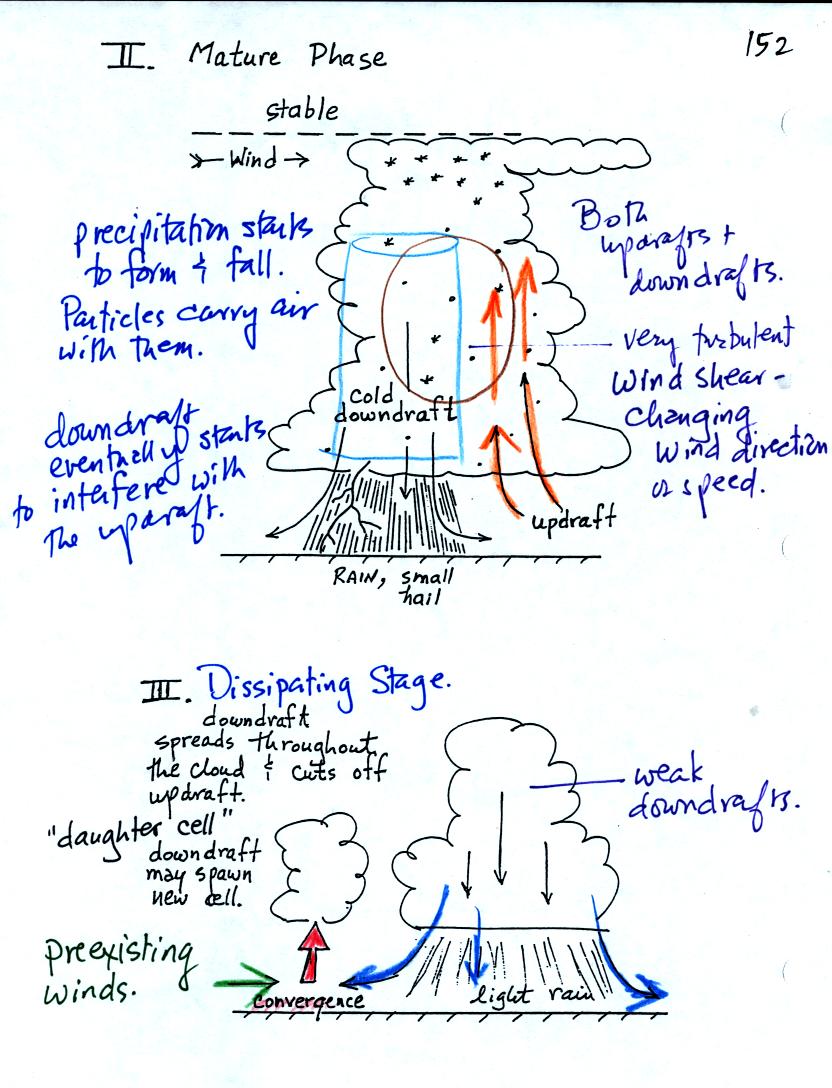 152
II. Mature Phase
stable
Wind
precipitation starts
to form & fall.
Particles carry air
with them.
Both
updrafts +
downdrafts.
very turbulent
Wind shear -
changing
Wind direction
or speed.
Cold
downdraft
downdraft
eventually starts
to interfere with
the updraft.
updraft
RAIN, small
hail
III. Dissipating Stage.
downdraft
spreads throughout
the cloud & cuts off
updraft.
"daughter cell"
downdraft
may spawn
new cell.
weak
downdrafts.
preexisting
winds.
convergence
light rain